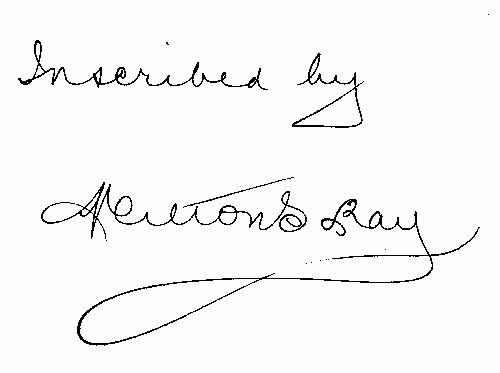 Inscribed by
Milton S Ray